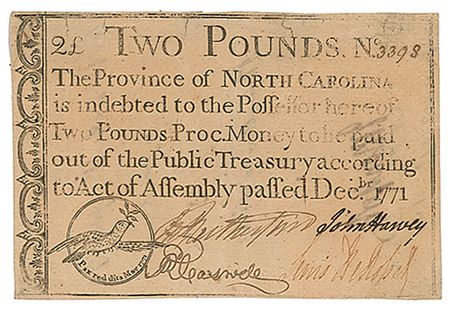 2£ TWO POUNDS. No. 3398
The Province of NORTH CAROLINA
is indebted to the Poſſeſſor hereof
Two POUNDS Proc. Money to be paid
out of the Public Treasury according
to Act of Assembly paſſed Dec.br 1771
John Harvey
Pax redditæ Mercen